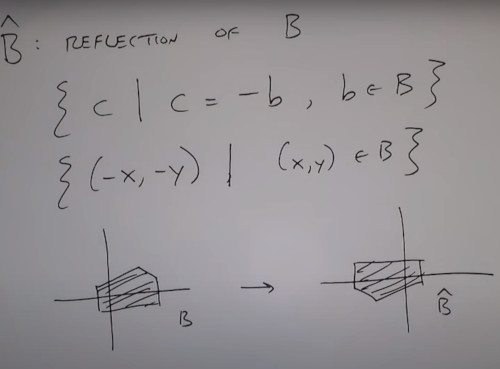 B̂ : REFLECTION OF B
{ c | c = -b , b ∈ B }
{ (-x, -y) | (x,y) ∈ B }
→
B
B̂